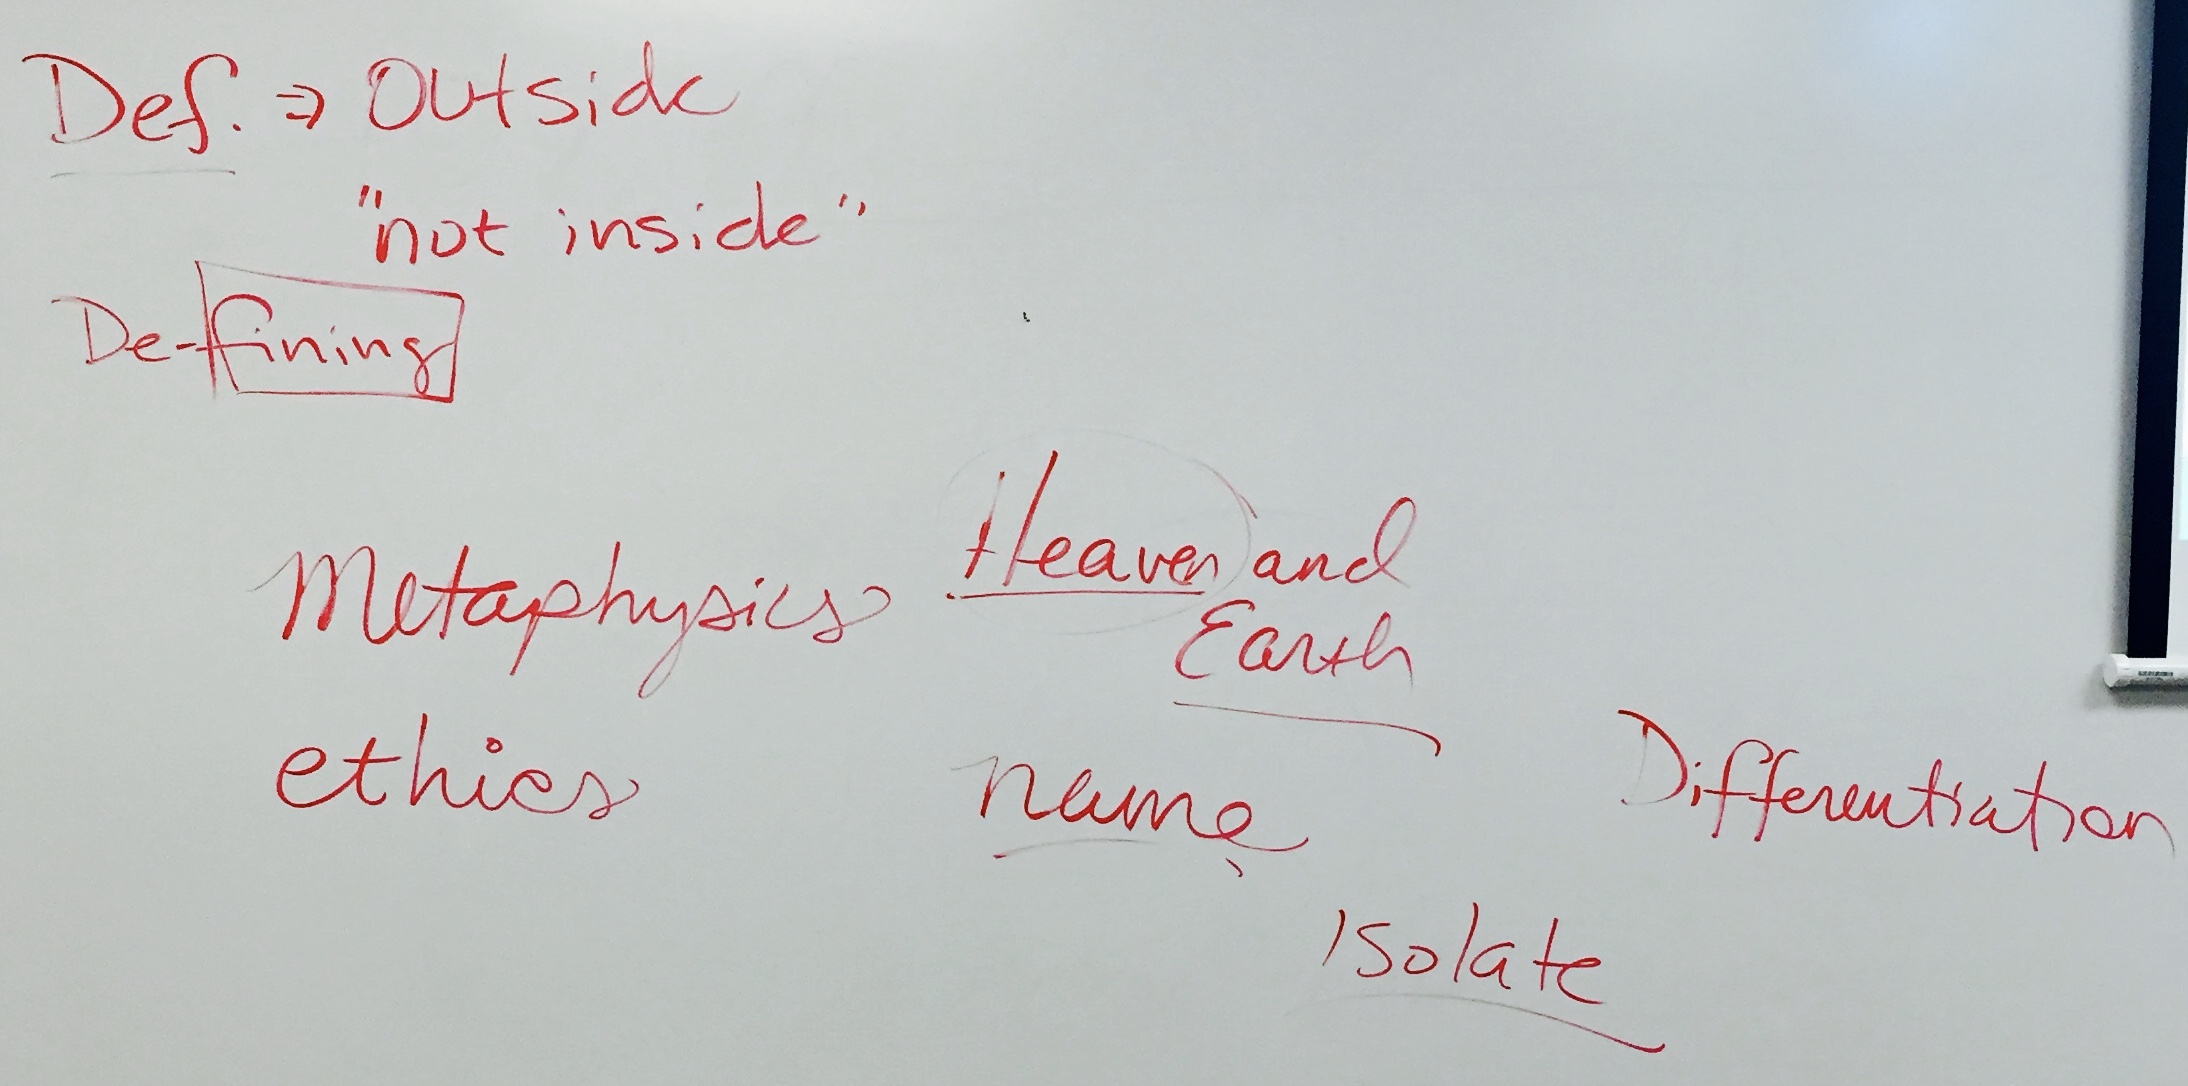 Def. ⇒ Outside
"not inside"
De-fining
Metaphysics
ethics
Heaven and
Earth
name
Isolate
Differentiation